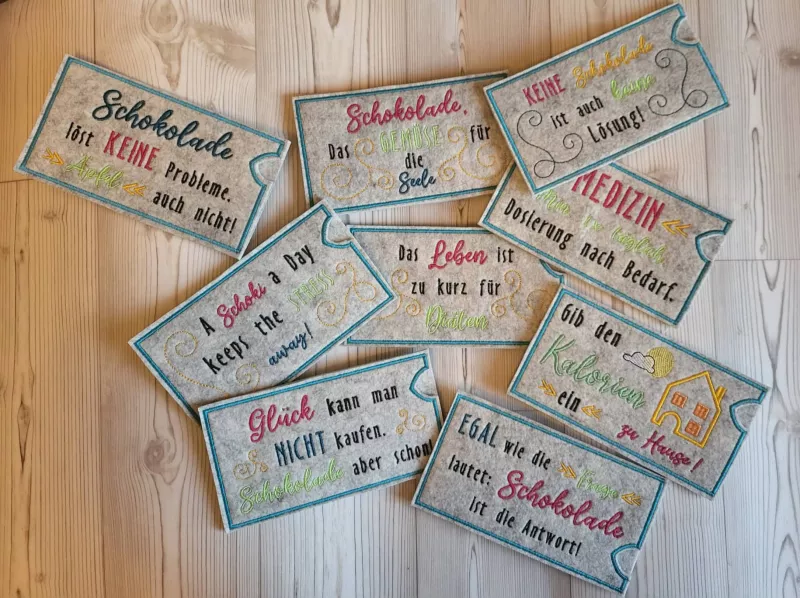 Schokolade
löst KEINE Probleme.
Äpfel
auch nicht!
Schokolade,
Das GEMÜSE für
die
Seele
KEINE Schokolade
ist auch keine
Lösung!
MEDIZIN
täglich,
Dosierung nach Bedarf.
A Schoki a Day
keeps the STRESS
away!
Das Leben ist
zu kurz für
Diäten
Gib den
Kalorien
ein
zu Hause!
Glück kann man
NICHT kaufen.
Schokolade aber schon!
EGAL wie die Frage
lautet: Schokolade
ist die Antwort!